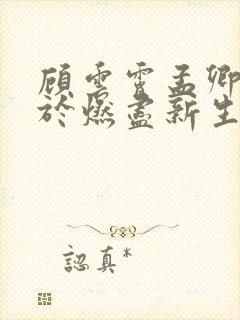 顾雪雪孟卿
於燃盡新生
認真*